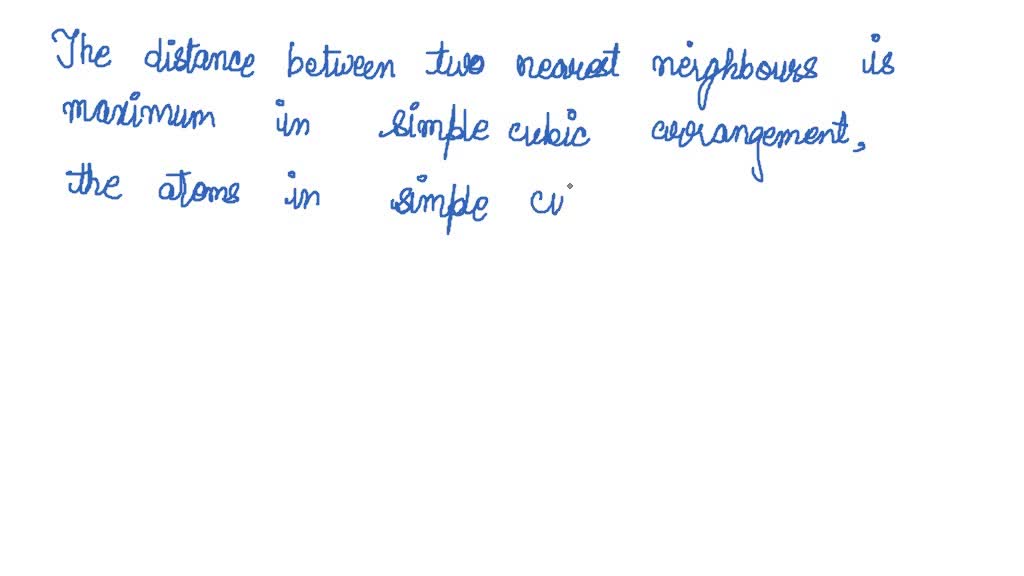 The distance between two nearest neighbours is
maximum in simple cubic arrangement,
the atoms in simple cu